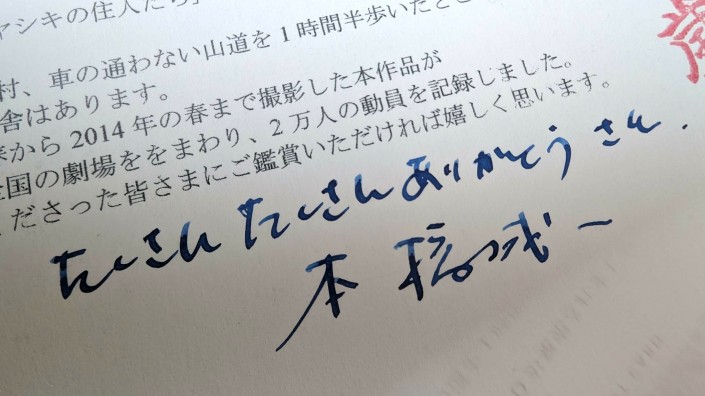 ヤシキの住人たち」
村、車の通わない山道を1時間半歩いたとこ
舎はあります。
から2014年の春まで撮影した本作品が
全国の劇場ををまわり、2万人の動員を記録しました。
くださった皆さまにご鑑賞いただければ嬉しく思います。
たくさんたくさんありがとうさん.
本橋成一